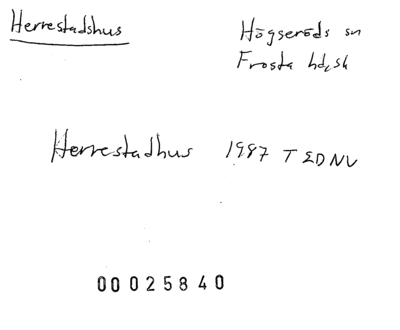 Herrestadshus
Högseröds sn
Frosta hd, sk
Herrestadhus 1987 T EDNV
00025840